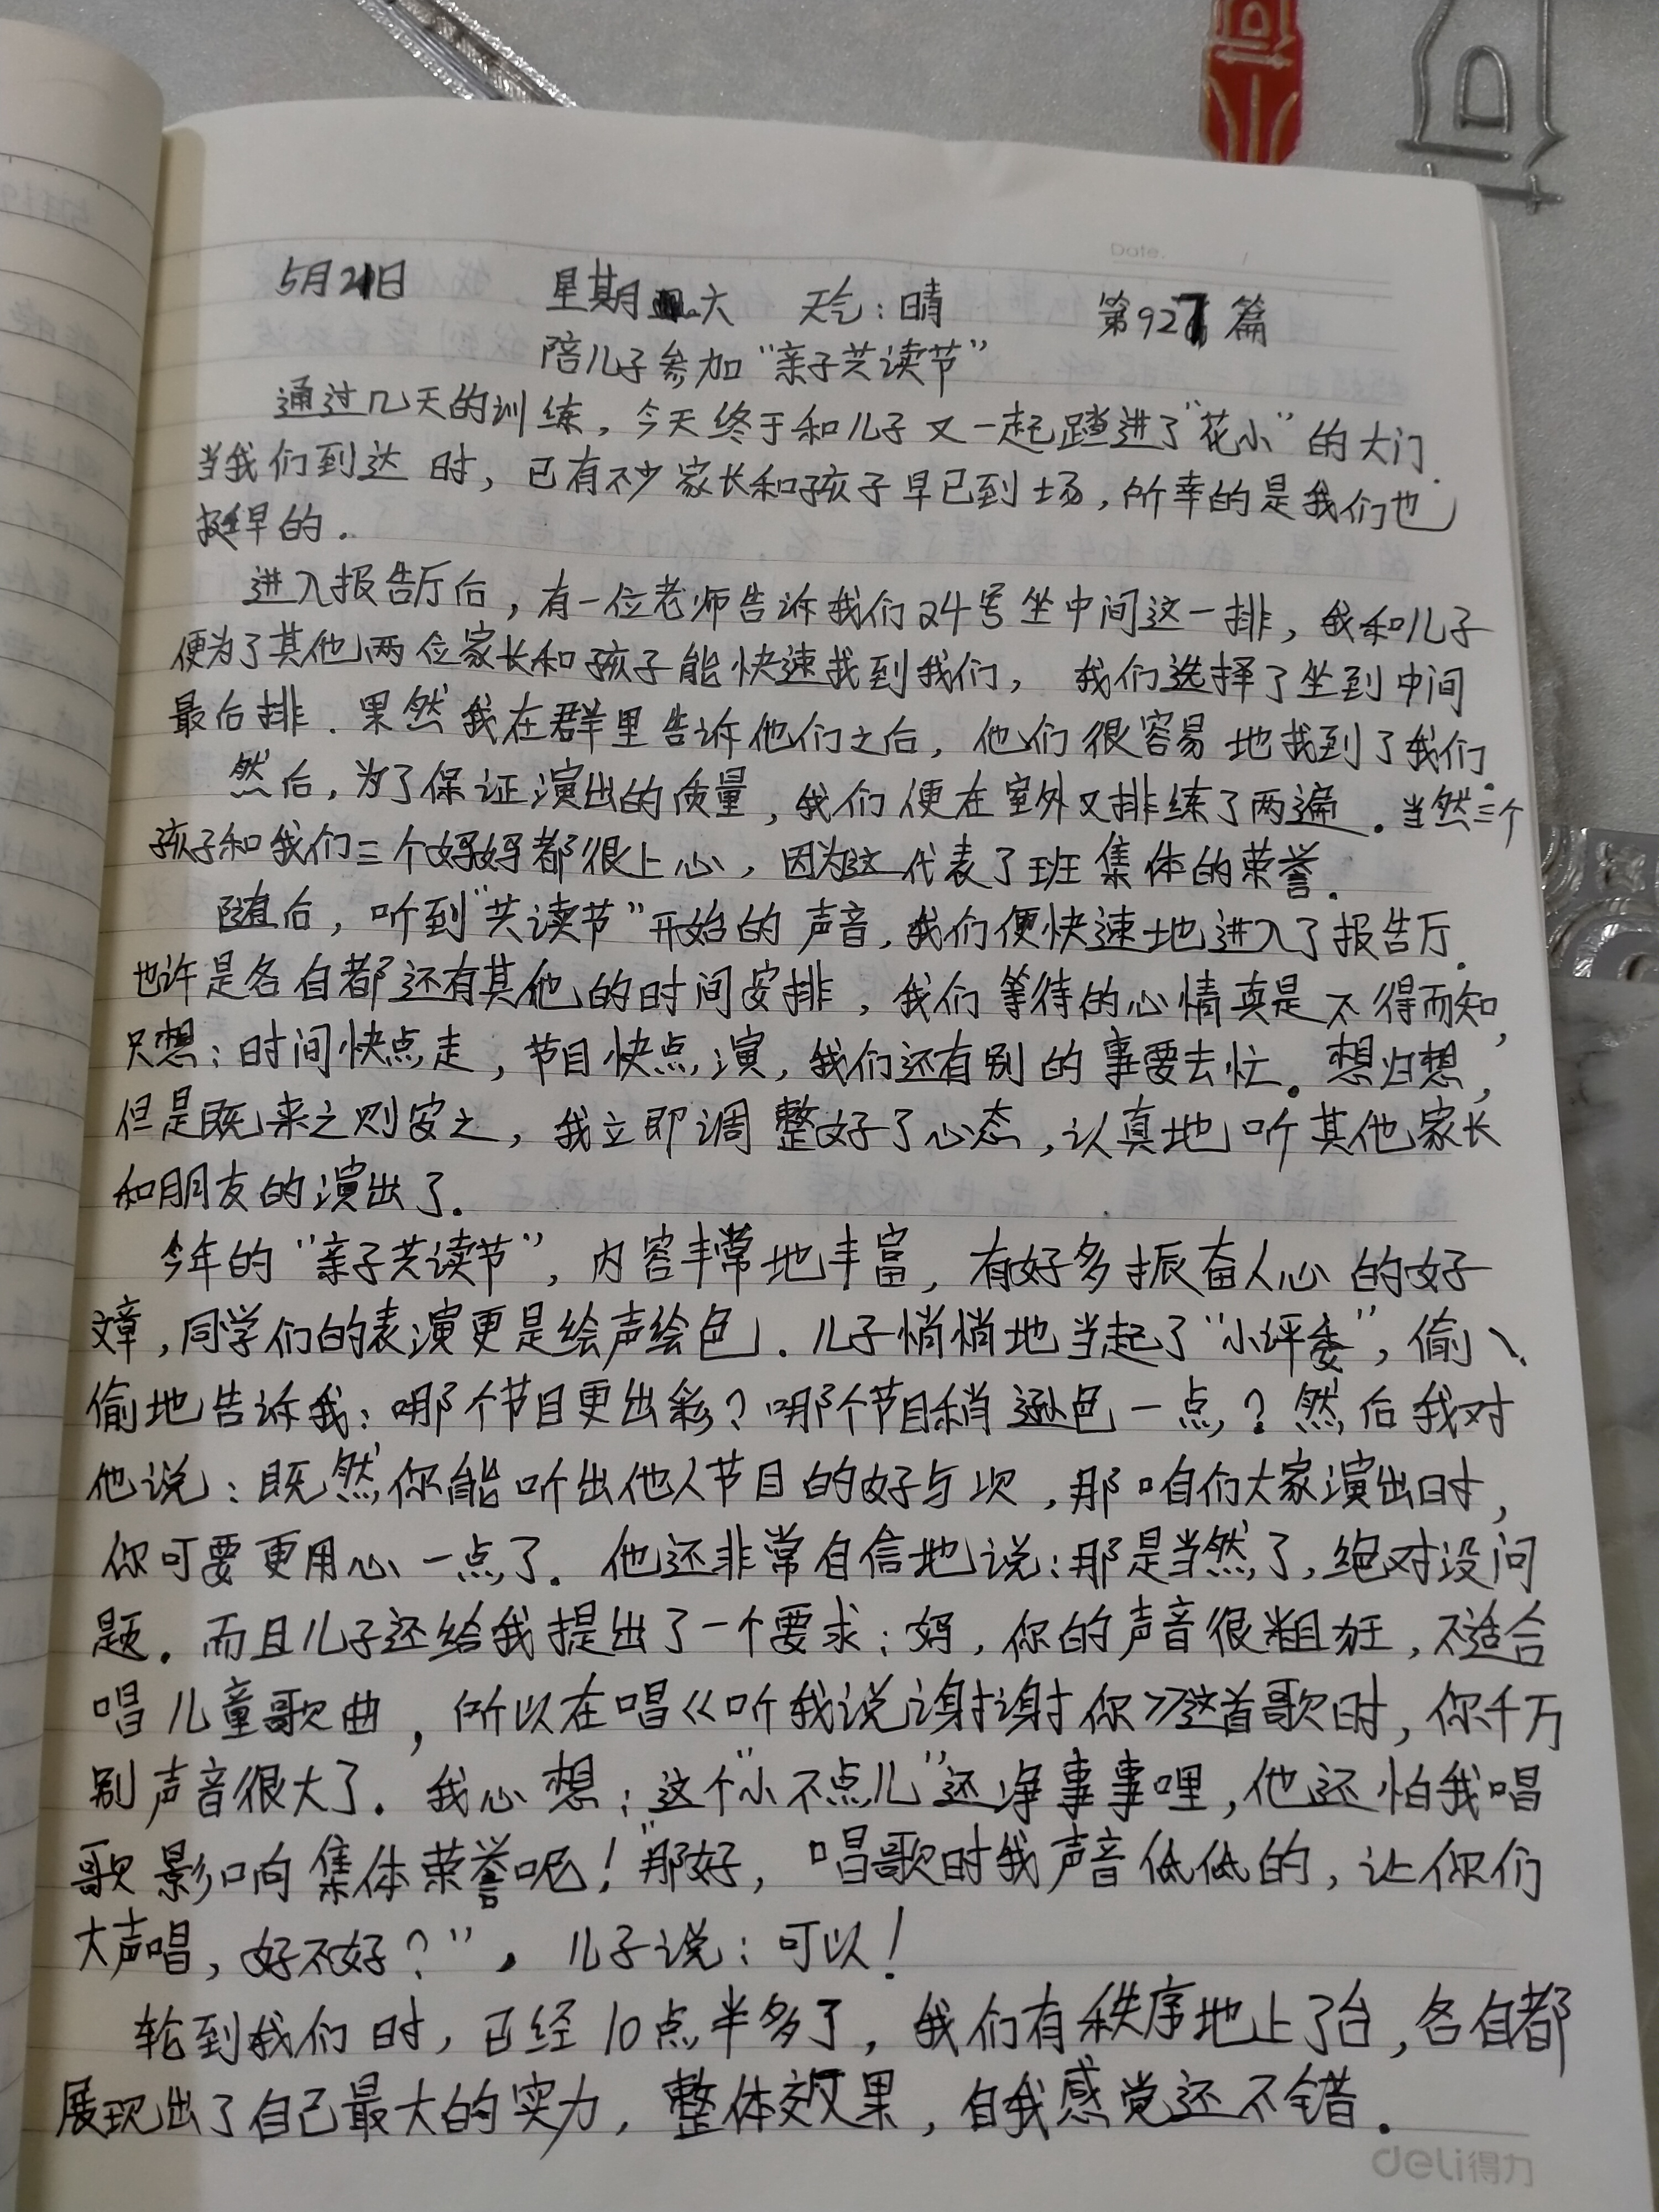 Date.
5月21日 星期六 天气:晴 第927篇
陪儿子参加“亲子共读节”
通过几天的训练,今天终于和儿子又一起踏进了“花小”的大门.
当我们到达时,已有不少家长和孩子早已到场,所幸的是我们也
挺早的.
进入报告厅后,有一位老师告诉我们24号坐中间这一排,我和儿子
便为了其他两位家长和孩子能快速找到我们,我们选择了坐到中间
最后排.果然我在群里告诉他们之后,他们很容易地找到了我们.
然后,为了保证演出的质量,我们便在室外又排练了两遍.当然三个
孩子和我们三个妈妈都很上心,因为这代表了班集体的荣誉.
随后,听到“共读节”开始的声音,我们便快速地进入了报告厅.
也许是各自都还有其他的时间安排,我们等待的心情真是不得而知,
只想:时间快点走,节目快点演,我们还有别的事要去忙。想归想,
但是既来之则安之,我立即调整好了心态,认真地听其他家长
和朋友的演出了.
今年的“亲子共读节”,内容丰常地丰富,有好多振奋人心的好
文章,同学们的表演更是绘声绘色.儿子悄悄地当起了“小评委”,偷
偷地告诉我:哪个节目更出彩?哪个节目稍逊色一点?然后我对
他说:既然你能听出他人节目的好与次,那咱们大家演出时,
你可要更用心一点了.他还非常自信地说:那是当然了,绝对没问
题.而且儿子还给我提出了一个要求:妈,你的声音很粗狂,不适合
唱儿童歌曲,所以在唱《听我说谢谢你》这首歌时,你千万
别声音很大了.我心想:这个“小不点儿”还净事事哩,他还怕我唱
歌影响集体荣誉呢!“那好,唱歌时我声音低低的,让你们
大声唱,好不好?”,儿子说:可以!
轮到我们时,已经10点半多了,我们有秩序地上了台,各自都
展现出了自己最大的实力,整体效果,自我感觉还不错.
deli得力